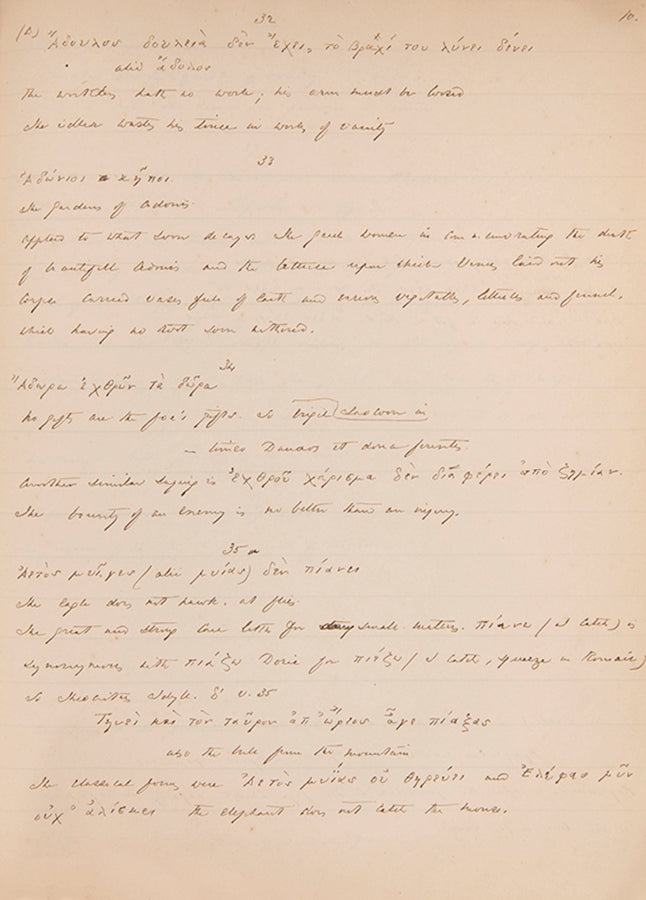 32
10.
(Α) Ἄδουλος δουλειὰ δὲν ἔχει, τὸ βραχί του λύνει δένει
alii ἄδολος
The workless hath no work; his arm must be loosed
The idler wastes his time in works of vanity
33
Ἀδώνιοι κῆποι.
The gardens of Adonis.
applied to what soon decays The Greek women in commemorating the death
of beautiful Adonis and the lettuce upon which Venus laid out his
corpse carried vases full of earth and various vegetables, lettuces and fennel,
which having no root soon withered.
34
Ἄδωρα ἐχθρῶν τὰ δῶρα
No gifts are the foe's gifts. So Virgil Laocoon in
— timeo Danaos et dona ferentes.
Another similar saying is Ἐχθροῦ χάρισμα δὲν διαφέρει ἀπὸ ζημίαν.
The bounty of an enemy is no better than an injury.
35
Ἀετὸς μυῖγες (alii μυίας) δὲν πιάνει
The Eagle does not hawk at flies.
The great and strong care little for small matters. Πιάνω (I catch) is
synonymous with πιάζω Doric for πιέζω (I catch, squeeze in Romaic)
So Theocritus Idyll. δ' v. 35
Τηνεὶ καὶ τὸν ταῦρον ἀπ' ὤρεος ἆγε πιάξας
also the bull from the mountain
The classical forms were Ἀετὸς μυίας οὐ θηρεύει and Ἐλέφας μῦν
οὐχ' ἁλίσκει the elephant does not catch the mouse.